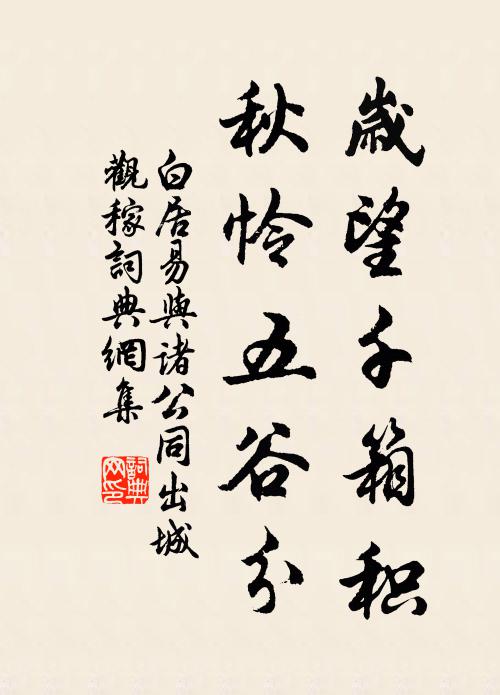 歲望千箱积
秋怜五谷分
白居易與諸公同出城
觀稼詞典網集
詞典
网印